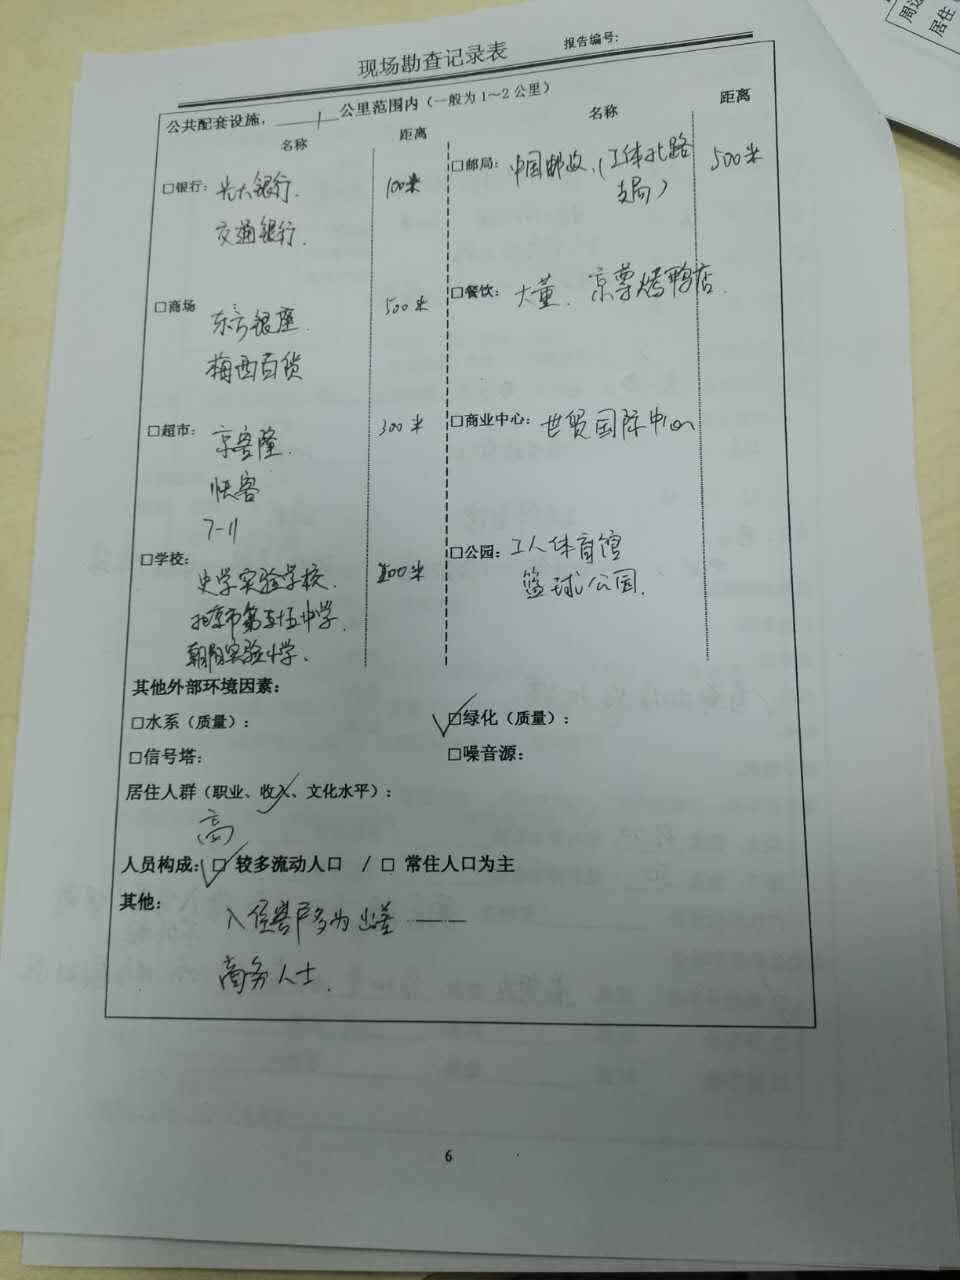 现场勘查记录表
报告编号:
公共配套设施，1公里范围内（一般为1～2公里）
名称 距离 名称 距离
□银行: 光大银行. 100米
交通银行.
□邮局: 中国邮政.（工体北路 500米
支局）
□商场 东方银座. 500米
梅西百货
□餐饮: 大董. 京尊烤鸭店.
□超市: 京客隆. 300米
快客
7-11
□商业中心: 世贸国际中心
□学校: 史学实验学校. 200米
北京市第五十五中学.
朝阳实验小学.
□公园: 工人体育馆
篮球公园.
其他外部环境因素:
□水系（质量）: □绿化（质量）:
□信号塔: □噪音源:
居住人群（职业、收入、文化水平）:
高
人员构成: □ 较多流动人口 / □ 常住人口为主
其他: 入住客户多为出差
商务人士.
6
周边
居住